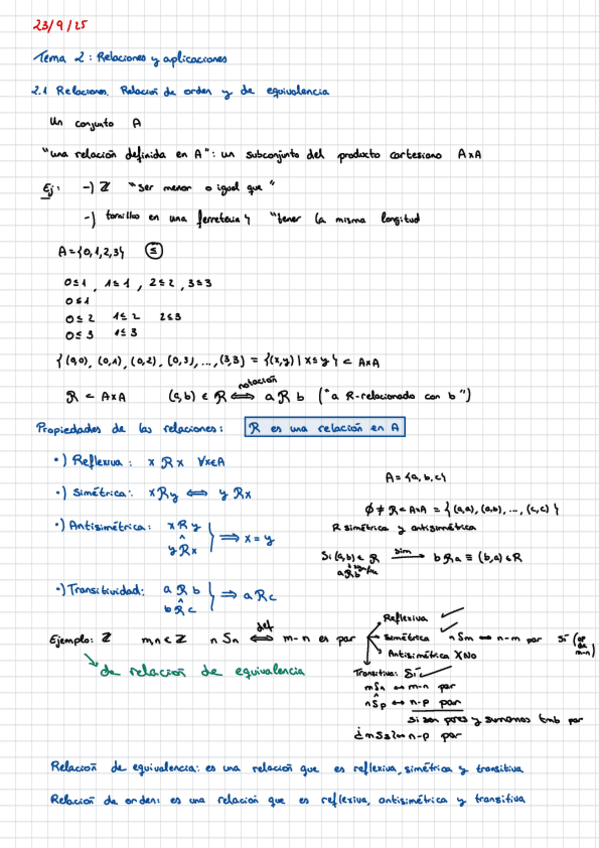 23/9/25
Tema 2: Relaciones y aplicaciones
2.1 Relaciones. Relación de orden y de equivalencia
Un conjunto A
"una relación definida en A": un subconjunto del producto cartesiano AxA
Ej: -) ℤ "ser menor o igual que"
-) tornillos en una ferretería y "tener la misma longitud
A={0,1,2,3} ≤
0≤1, 1≤1, 2≤2, 3≤3
0≤1
0≤2 1≤2 2≤3
0≤3 1≤3
{(0,0), (0,1), (0,2), (0,3), ..., (3,3) = {(x,y) | x≤y} ⊂ AxA
R ⊂ AxA (a,b) ∈ R ⟺ notación a R b ("a R-relacionado con b")
Propiedades de las relaciones: R es una relación en A
·) Reflexiva: x R x ∀x∈A
·) Simétrica: x R y ⟺ y R x
·) Antisimétrica: x R y ^ y R x } ⟹ x = y
·) Transitividad: a R b ^ b R c } ⟹ a R c
A = {a, b, c}
∅ ≠ R ⊂ AxA = {(a,a), (a,b), ..., (c,c)}
R simétrica y antisimétrica
Si (a,b) ∈ R sim ⟶ b R a ≡ (b,a) ∈ R
a R b
Ejemplo: ℤ m,n ∈ ℤ n S n ⟺ def m-n es par
Reflexiva ✓
Simétrica ✓ n S m ⟺ n-m par Sí
Antisimétrica X No
Transitiva: Sí ✓
m S n ↔ m-n par
^
n S p ↔ n-p par
si son pares y sumamos tmb par
¿m S s? ↔ n-p par
de relación de equivalencia
Relación de equivalencia: es una relación que es reflexiva, simétrica y transitiva
Relación de orden: es una relación que es reflexiva, antisimétrica y transitiva